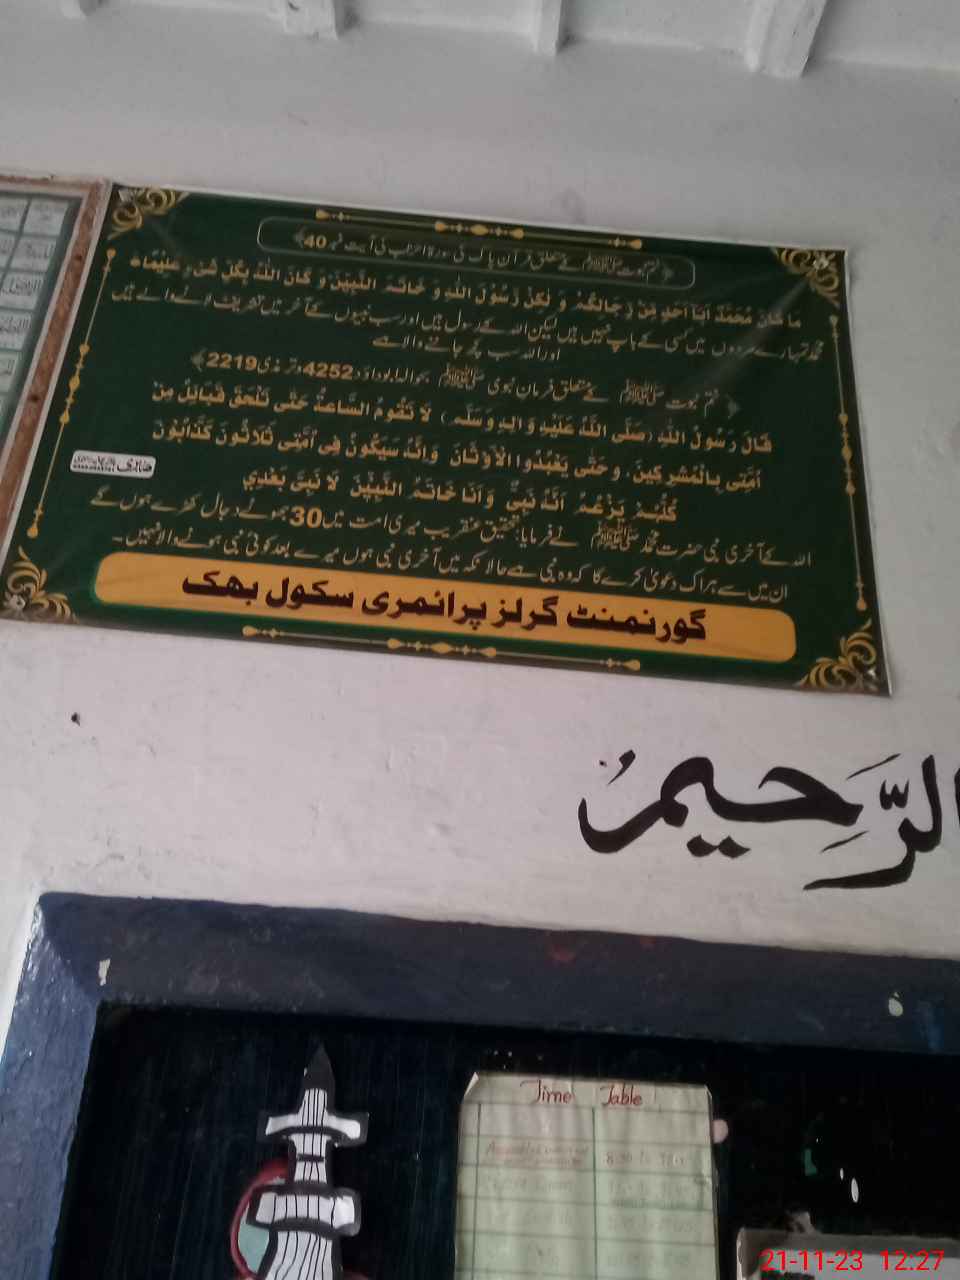 ﴿ ختم نبوت ﷺ کے متعلق قرآن پاک کی سورۃ احزاب کی آیت نمبر 40 ﴾
مَا كَانَ مُحَمَّدٌ اَبَآ اَحَدٍ مِّنْ رِّجَالِكُمْ وَ لٰكِنْ رَّسُوْلَ اللّٰهِ وَ خَاتَمَ النَّبِيّٖنَ وَ كَانَ اللّٰهُ بِكُلِّ شَیْءٍ عَلِيْمًا
محمد تمہارے مردوں میں کسی کے باپ نہیں ہیں لیکن اللہ کے رسول ہیں اور سب نبیوں کے آخر میں تشریف لانے والے ہیں
اور اللہ سب کچھ جاننے والا ہے
﴿ ختم نبوت ﷺ کے متعلق فرمان نبوی ﷺ بحوالہ ابوداؤد 4252، ترمذی 2219 ﴾
قَالَ رَسُوْلُ اللّٰهِ (صَلَّى اللّٰهُ عَلَيْهِ وَاٰلِهٖ وَسَلَّم) لَا تَقُوْمُ السَّاعَةُ حَتّٰى تَلْحَقَ قَبَائِلُ مِنْ
اُمَّتِى بِالْمُشْرِكِينَ، وَ حَتّٰى يَعْبُدُوا الْاَوْثَانَ وَاِنَّهٗ سَيَكُوْنُ فِى اُمَّتِى ثَلَاثُوْنَ كَذَّابُوْنَ
كُلُّهُمْ يَزْعُمُ اَنَّهٗ نَبِىٌّ وَ اَنَا خَاتَمُ النَّبِيّٖنَ لَا نَبِىَّ بَعْدِى
صابری
اللہ کے آخری نبی حضرت محمد ﷺ نے فرمایا: تحقیق عنقریب میری امت میں 30 جھوٹے دجال کھڑے ہوں گے
ان میں سے ہر اک دعویٰ کرے گا کہ وہ نبی ہے حالانکہ میں آخری نبی ہوں میرے بعد کوئی نبی ہونے والا نہیں۔
گورنمنٹ گرلز پرائمری سکول بھک
الرَّحِيمُ
Time Table
21-11-23 12:27